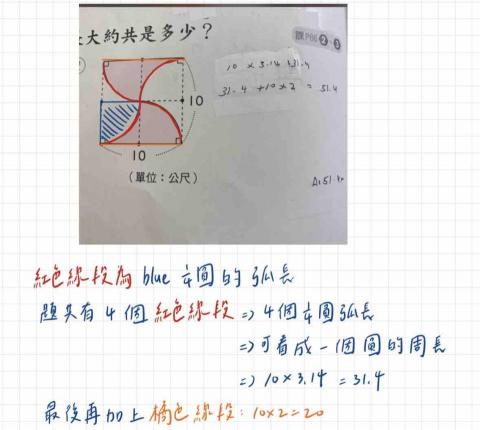 大約共是多少？
課P86 2、3
10 × 3.14 = 31.4
31.4 + 10 × 2 = 51.4
10
10
(單位：公尺)
A:51.4m
紅色線段為 blue ¼圓的弧長
題共有 4 個 紅色線段 => 4個¼圓弧長
=> 可看成一個圓的周長
=> 10×3.14 = 31.4
最後再加上橘色線段：10×2=20